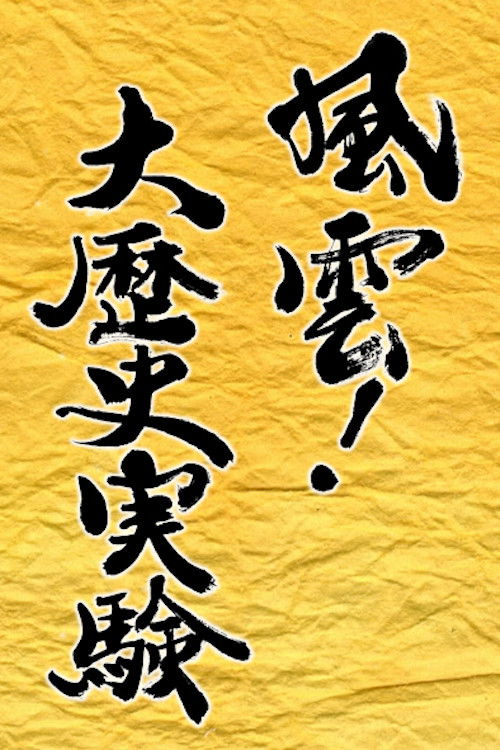 風雲！
大歴史実験